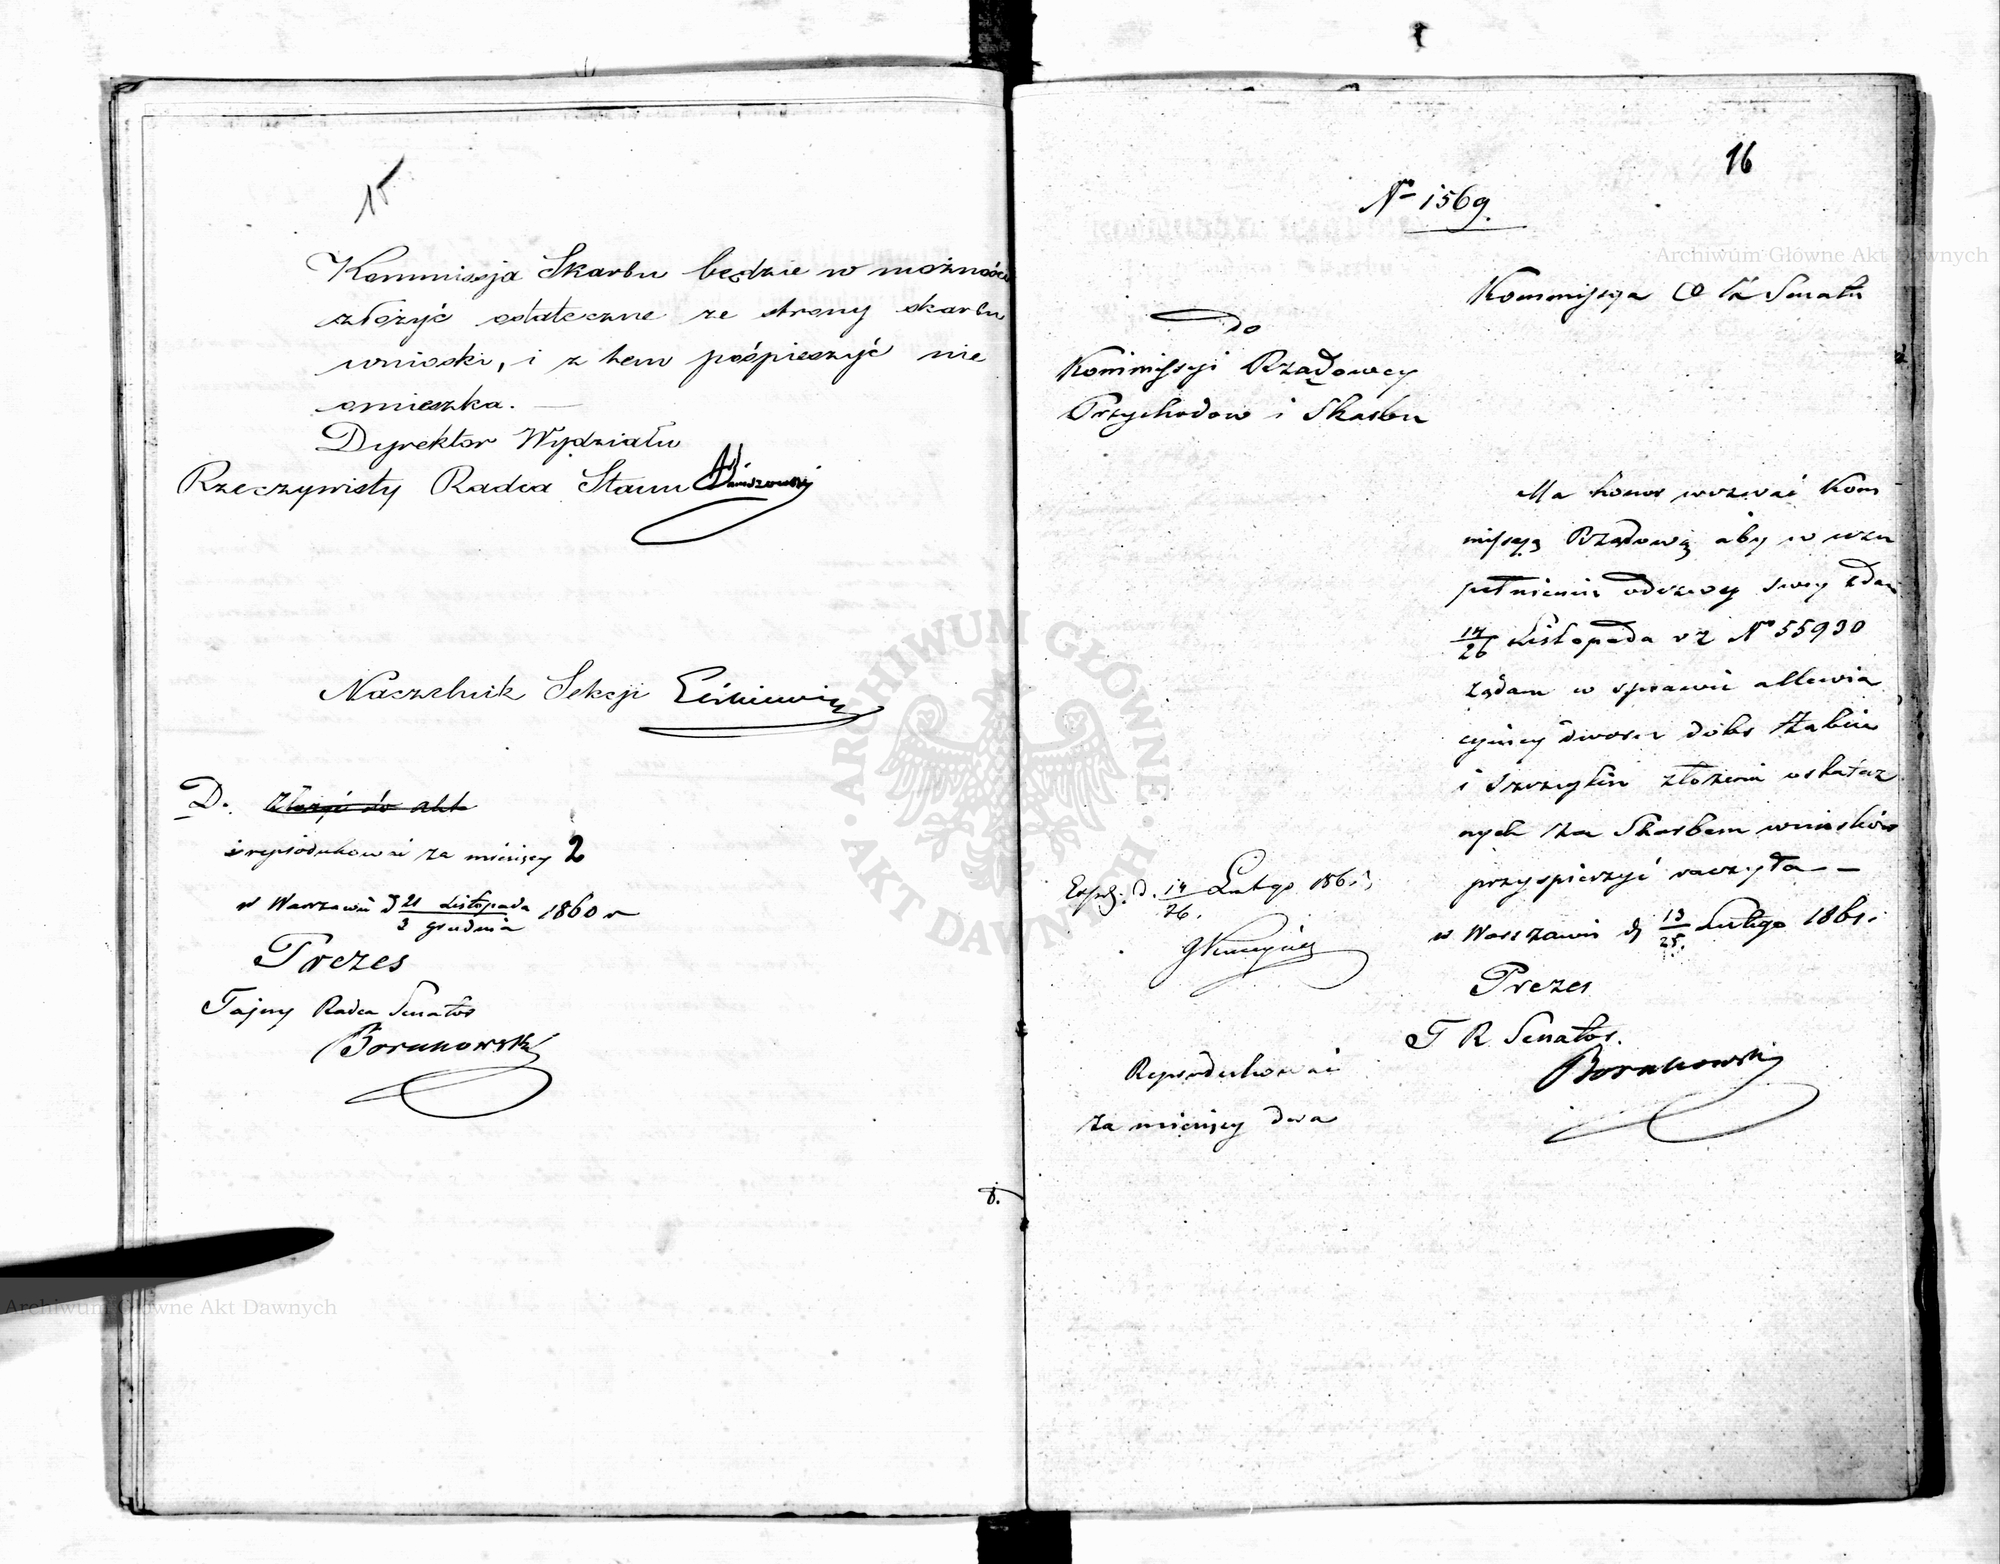 15
Kommissja Skarbu będzie w możności
złożyć ostateczne ze strony skarbu
wnioski, i z tem pośpieszyć nie
omieszka. —
Dyrektor Wydziału
Rzeczywisty Radca Stanu
Naczelnik Sekcji
D. Złożyć do akt
i reprodukować za miesięcy 2
w Warszawie d 21 Listopada / 3 grudnia 1860 r
Prezes
Tajny Radca Senator
Boruкowski
16
No 1569.
Kommissya Senatu
do
Kommissyi Rządowey
Przychodow i Skarbu
Ma honor wezwać Kom
missyą Rządową aby w uzu
pełnieniu odezwy swey z dnia
14/26 Listopada r z No 55930
żądam w sprawie allewia
cyiney dworu dobr
i Szczytin złożenie ostatecz
nych za Skarbem wniosków
przyspieszyć raczyła —
w Warszawie d 13/25 Lutego 1861.
Prezes
T R Senator.
Borukowski
Exped: d. 14/26. Lutego 1861
Reprodukować
za miesięcy dwa
ARCHIWUM GŁÓWNE
AKT DAWNYCH
Archiwum Główne Akt Dawnych
Archiwum Główne Akt Dawnych